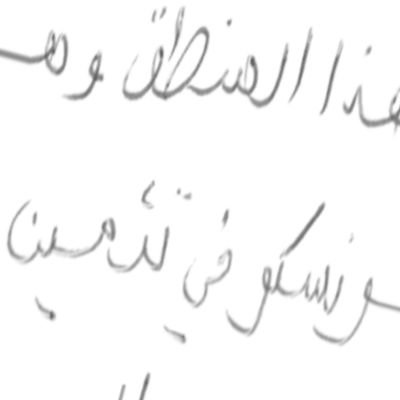 هذا المنطق وهـ
ـونسكو في تثمين